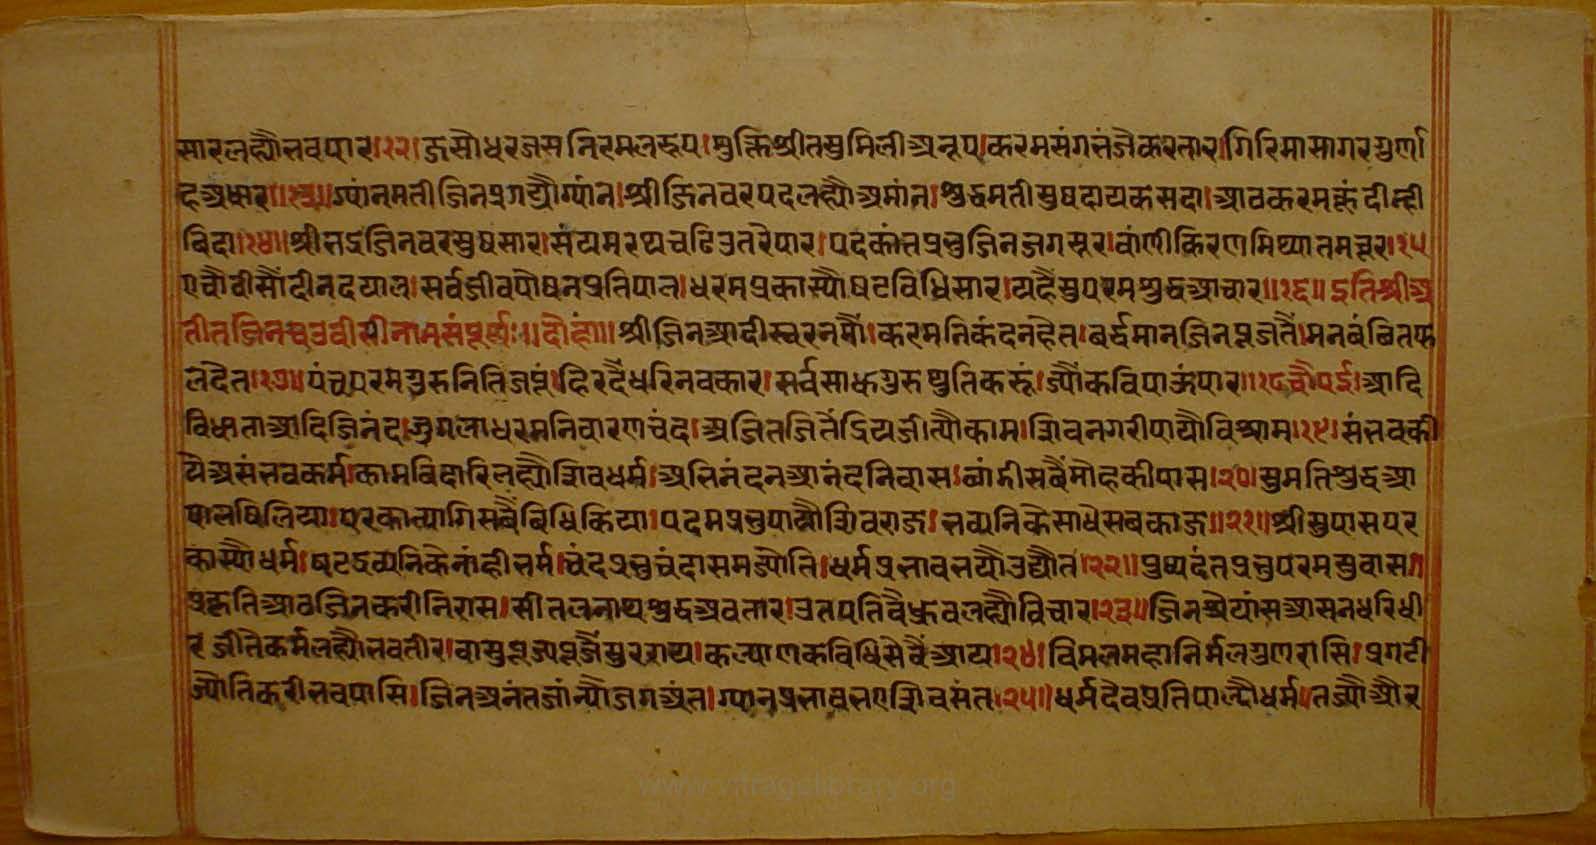 सारलह्यौभवपार।१२।जसौधरजसनिरमलरूप।मुक्तिश्रीतसुमिलीअनूप।करमसंगभंजैकरतार।गिरिमासागरगुर्णा
हअधार॥१३॥ग्यांनमतीजिनप्रगट्यौग्यांन।श्रीजिनवरपदलह्यौअमांन।शुद्धमतीसुषदायकसदा।आवकरमकूंदीन्ही
बिदा।१४॥श्रीभद्रजिनवरसुषसार।संयमरथचढिउतरैपार।पदकांतप्रभुजिनजगसूर।वांणीकिरणमिथ्यातमचूर।१५
एचौवीसौंदीनदयाल।सर्वजीवपौषनप्रतिपाल।धरमप्रकास्यौषटविधिसार।यहैसुपरमशुद्धआचार॥१६॥इतिश्रीअ
तीतजिनचउवीसीनामसंपूर्णः॥दौहा॥श्रीजिनआदीस्वरनमौं।करमनिकंदनहैत।बर्द्धमानजिनपूजतैं।मनबंछितफ
लदैत।१७॥पंचपरमगुरुनितिजपूं।हिरदैंधरिनवकार।सर्वसाधगुरुथुतिकरूं।ज्यौंकविपाऊंपार॥१८चौपई।आदि
विधाताआदिजिनंद।जुगलाधरमनिवारणचंद।अजितजितेंद्रियजीत्यौकाम।शिवनगरीपायौविश्राम।१९।संभवकी
यैअसंभवकर्म।कामबिदारिलह्यौशिवधर्म।अभिनंदनआनंदनिवास।छांडीसबैंमौहकीपास।२०।सुमतिशुद्धआ
पालषिलिया।परकात्यागिसबैंबिधिकिया।पदमप्रभुपायौशिवराज।भव्यनिकैसाधैसबकाज॥२१॥श्रीसुपासपर
कास्यौधर्म।षटद्रव्यनिकैनांहीभर्म।चंदप्रभुचंदासमज्यौति।धर्मप्रभावभयौउद्यौत।२२॥पुष्पदंतप्रभुपरमसुवास।
प्रकृतिआवजिनकरीनिरास।सीतलनाथशुद्धअवतार।व्रतपतिवैध्रुवलह्यौविचार।२३॥जिनश्रैयांसआसनधरिधी
रजीतेकर्मलह्यौभवतीर।वासुपूज्यपूजैंसुरराय।कल्याणकविधिसेवैंआय।२४।विमलमहानिर्मलगुणरासि।प्रगटी
ज्यौतिकरीभवपासि।जिनअनंतजांन्यौजगअंत।ग्यानप्रभावभएशिवसंत।२५॥धर्मदेवप्रतिपाल्यौधर्म।तज्यौऔर
www.vitragelibrary.org